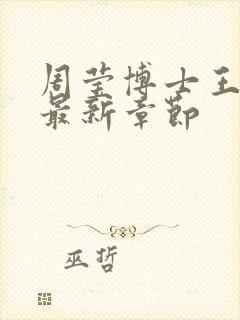 周莹博士王
最新章节
巫哲